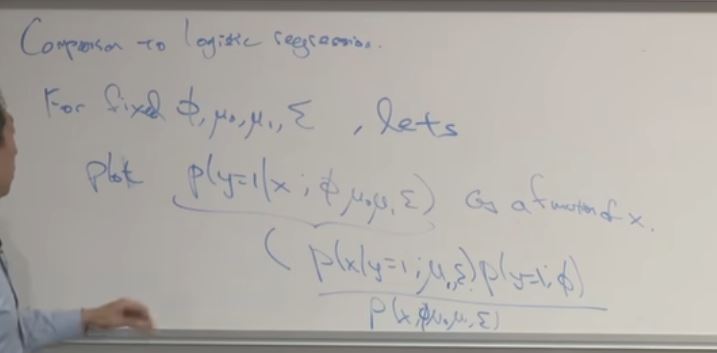 Comparison to logistic regression.
For fixed ϕ, μ₀, μ₁, Σ, lets
plot p(y=1|x; ϕ, μ₀, μ₁, Σ) as a function of x.
( p(x|y=1; μ₁, Σ) p(y=1; ϕ)
p(x; ϕ, μ₀, μ₁, Σ)